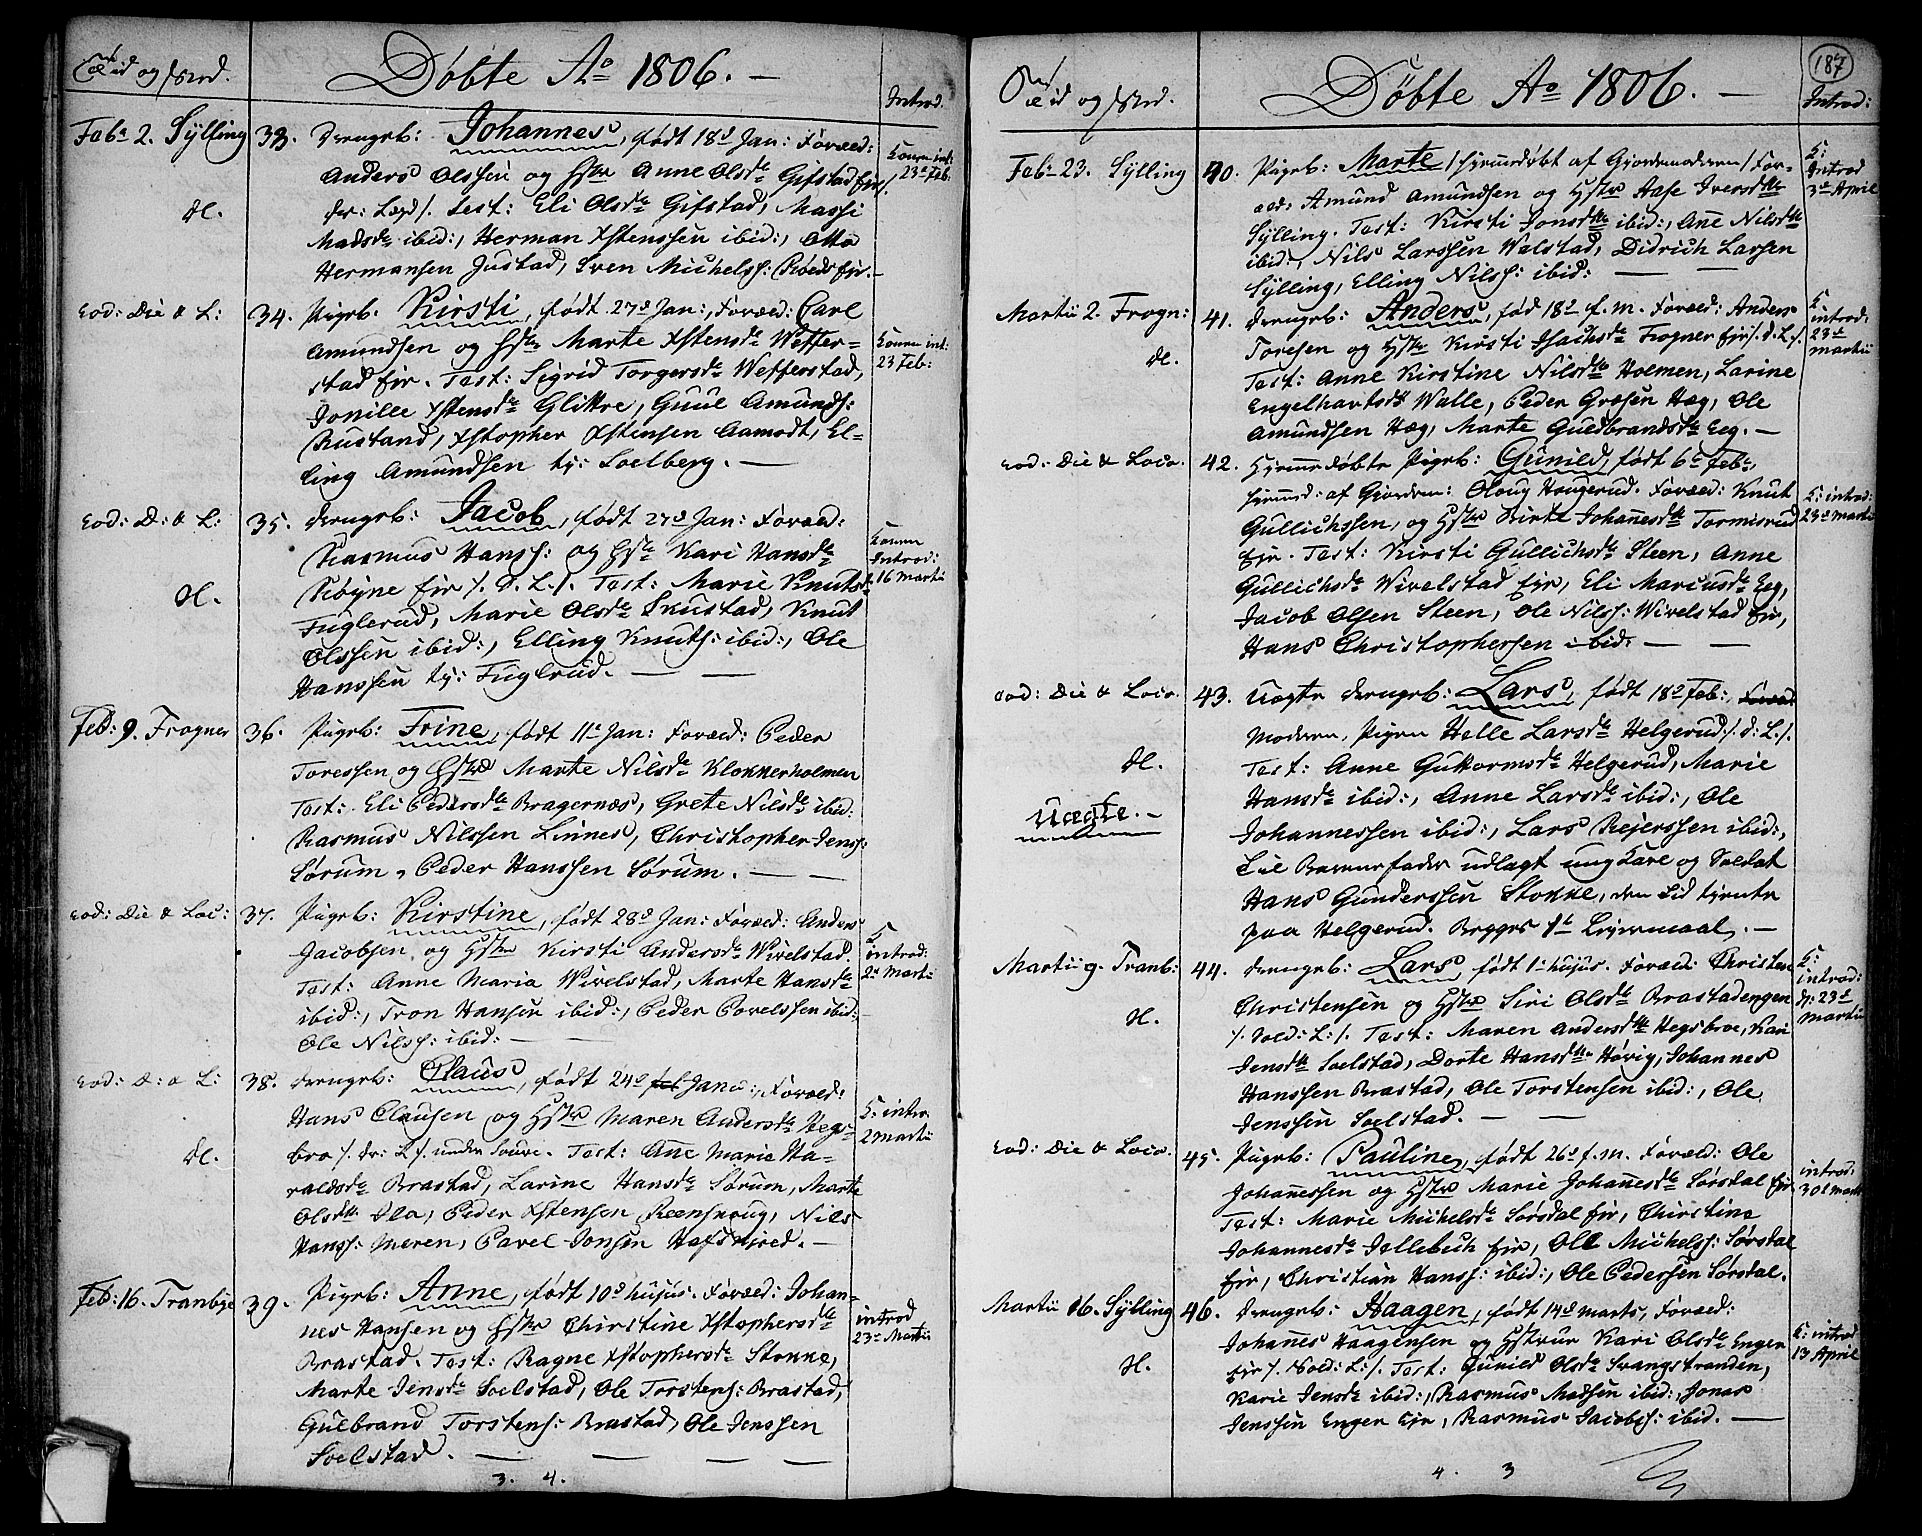 Tid og Sted.
Døbte Ao 1806. —
Introd.
Febr 2. Sÿlling 33. Drengeb: Johannes, født 18d Jan: Foræld:
Anders Olssen og Hstr Anne Olsdr Gifstad Eier
der: Lægd /. Test: Eli Olsdr Gifstad, Massi
Madsdr ibid:, Herman Xstenssen ibid:, Otto
Hermansen Justad, Sven Michelss: Røed Eir. —
dl.
Konen int:
23de Feb:
eod: Die & L: 34. Pigeb. Kirsti, født 27d Jan:, Foræld: Carl
Amundsen og Hstr Marte Xstensdr Weffer=
stad Eir. Test: Sigrid Torgersdr Wefferstad,
Jonille Xstensdr Glittre, Guul Amunds:
Rustand, Xstopher Xstensen Aamodt, El=
ling Amundsen tj: Soelberg. —
Konen int:
23 Feb:
eod: D: & L: 35. Drengeb: Jacob, født 27d Jan: Foræld:
Rasmus Hanss: og Hstr Kari Hansdr
Røÿne Eir /. D. L. /. Test: Marie Knutsdr
Fuglerud, Marie Olsdr Skustad, Knut
Olssen ibid:, Elling Knuts: ibid:, Ole
Hanssen tj: Fuglrud. — —
dl.
Konen
Introd:
16 Martii
Feb: 9. Frogner 36. Pigeb: Trine, født 11d Jan: Foræld: Peder
Toressen og Hstr Marte Nilsdr Klokkerholmen
Test: Eli Pedersdr Bragernæs, Grete Nilsdr ibid:
Rasmus Nilssen Linnes, Christopher Jenss:
Sørum, Peder Hanssen Sørum. — —
eod: Die & Loc: 37. Pigeb: Kirstine, født 28d Jan: Foræld: Anders
Jacobsen, og Hstr Kirsti Andersdr Wivelstad.
Test: Anne Maria Wivelstad, Marte Hansdr
ibid:, Tron Hansen ibid:, Peder Povelssen ibid:
Ole Nilss: ibid: — —
K
introd:
2den Martii
eod: D: & L: 38. Drengeb: Claus, født 24d Janu:, Foræld:
Hans Clausen og Hstr Maren Andersdr Hegs=
bro /. dr: L /. under Souve. Test: Anne Marie Ha=
raldsdr Brastad, Larine Hansdr Sørum, Marte
Olsdtr Ila, Peder Xstensen Reenskoug, Nils
Hanss: Meren, Pavel Jonsen Hafskired. —
dl.
K: intro
2 Martii
Feb: 16. Tranbÿe 39. Pigeb: Anne, født 10d hujus. Foræld: Johan=
nes Hansen og Hstr Christine Xstophersdr
Brastad. Test: Ragne Xstophersdr Stokke,
Marte Jensdr Soelstad, Ole Torstens: Brastad,
Gulbrand Torstens: Brastad, Ole Jenssen
Soelstad. — — — —
introd
23de Martii
3. 4.
187
Tid og Sted.
Døbte Ao 1806. —
Introd:
Febr 23. Sÿlling 40. Pigeb: Marte / hjemmedøbt af Gjordemoderen / For-
æld: Amund Amundsen og Hstr Aase Iversdtr
Sÿlling. Test: Kirsti Jonsdtr ibid:, Anne Nilsdtr
ibid:, Nils Larssen Walstad, Didrich Larsen
Sÿlling, Elling Nilss: ibid: — —
K:
Introd
3de April
Martii 2. Frogn: 41. Drengeb: Anders, fød 18d f. m. Foræld: Anders
Toresen og Hstr Kirsti Isachsdr Frogner Eir /. d. L. /.
Test: Anne Kirstine Nilsdtr Holmen, Larine
Engelhartsdtr Walle, Peder Grosen Hæg, Ole
Amundsen Hæg, Marte Guldbrandsdr Eeg. —
dl.
K.
introd:
23de
Martii
eod: Die & Loco. 42. Hjemmedøbte Pigeb: Gunild, født 6d Feb:,
hjemmed: af Gjordem: Oloug Hougerud. Foræld: Knut
Gullichssen, og Hstr Birte Johannesdtr Tormisrud
Eir. Test: Kirsti Gullichsdr Steen, Anne
Gullichsdr Wivelstad Eir, Eli Mariusdr Eeg,
Jacob Olsen Steen, Ole Nilss: Wivelstad Eir,
Hans Christophersen ibid: — —
K: introd:
23de Martii
eod: Die & Loco. 43. Uægte Drengeb: Lars, født 18d Feb:,
Moderen, Pigen Helle Larsdr Helgerud. /. d: L. /.
Test: Anne Guttormsdr Helgerud, Marie
Hansdr ibid:, Anne Larsdr ibid:, Ole
Johannessen ibid:, Lars Rejerssen ibid:,
Til Barnefader udlagt ung Karl og Soldat
Hans Gunderssen Stokke, den Tid tjente
paa Helgerud. Begges 1te Leiermaal. —
dl.
Uægte. —
Martii 9. Tranb: 44. Drengeb: Lars, født 1te hujus. Foræld: Christen
Christensen og Hstr Siri Olsdr Brastadengen
/. Sold: L: /. Test: Maren Andersdtr Hegsbroe, Kari
Jensdtr Soelstad, Dorte Hansdtr Høvig, Johannes
Hanssen Brastad, Ole Torstensen ibid:, Ole
Jenssen Soelstad. — —
dl.
K:
introd:
d: 23de
Martii
eod: Die & Loco. 45. Pigeb: Pauline, født 26d f. m. Foræld: Ole
Johannessen og Hstr Marie Johannesdr Sørsdal Eir
Test: Marie Michelsdr Sørsdal Eir, Chirstine
Johannesdr Jellebech Eir, Ole Michelss: Sørsdal
Eir, Christian Hanss: ibid:, Ole Pedersen Sørsdal.
introd:
30d Martii
Martii 16. Sÿlling 46. Drengeb: Haagen, født 14d Marts, Foræld:
Johannes Haagensen og Hstrue Kari Olsdr Enger
Eir /. Nold: L: /. Test: Gunild Olsdr Svangstranden,
Karie Jensdr ibid:, Rasmus Madsen ibid:, Jonas
Jenssen Enger Eir, Rasmus Jacobss: ibid. —
dl.
K: introd
13 April
4. 3